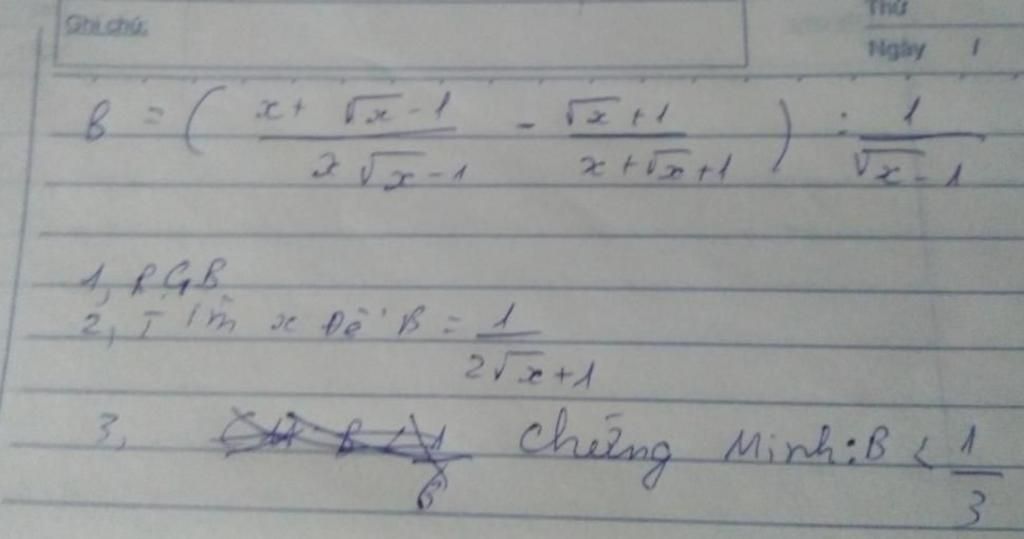 Ghi chú:
Thứ
Ngày 1
B = ( x + √x - 1 / x√x - 1 - √x + 1 / x + √x + 1 ) : 1 / √x - 1
1, RGB
2, Tìm x Để B = 1 / 2√x + 1
3, Chứng Minh: B < 1 / 3